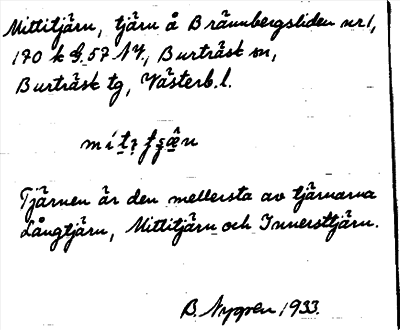 Mittitjärn, tjärn å Brännbergsliden nr 1,
170 k
Burträsk sn,
Burträsk tg, Västerb. l.
Tjärnen är den mellersta av tjärnarna
Långtjärn, Mittitjärn och Innersttjärn.
B. Nygren 1933.